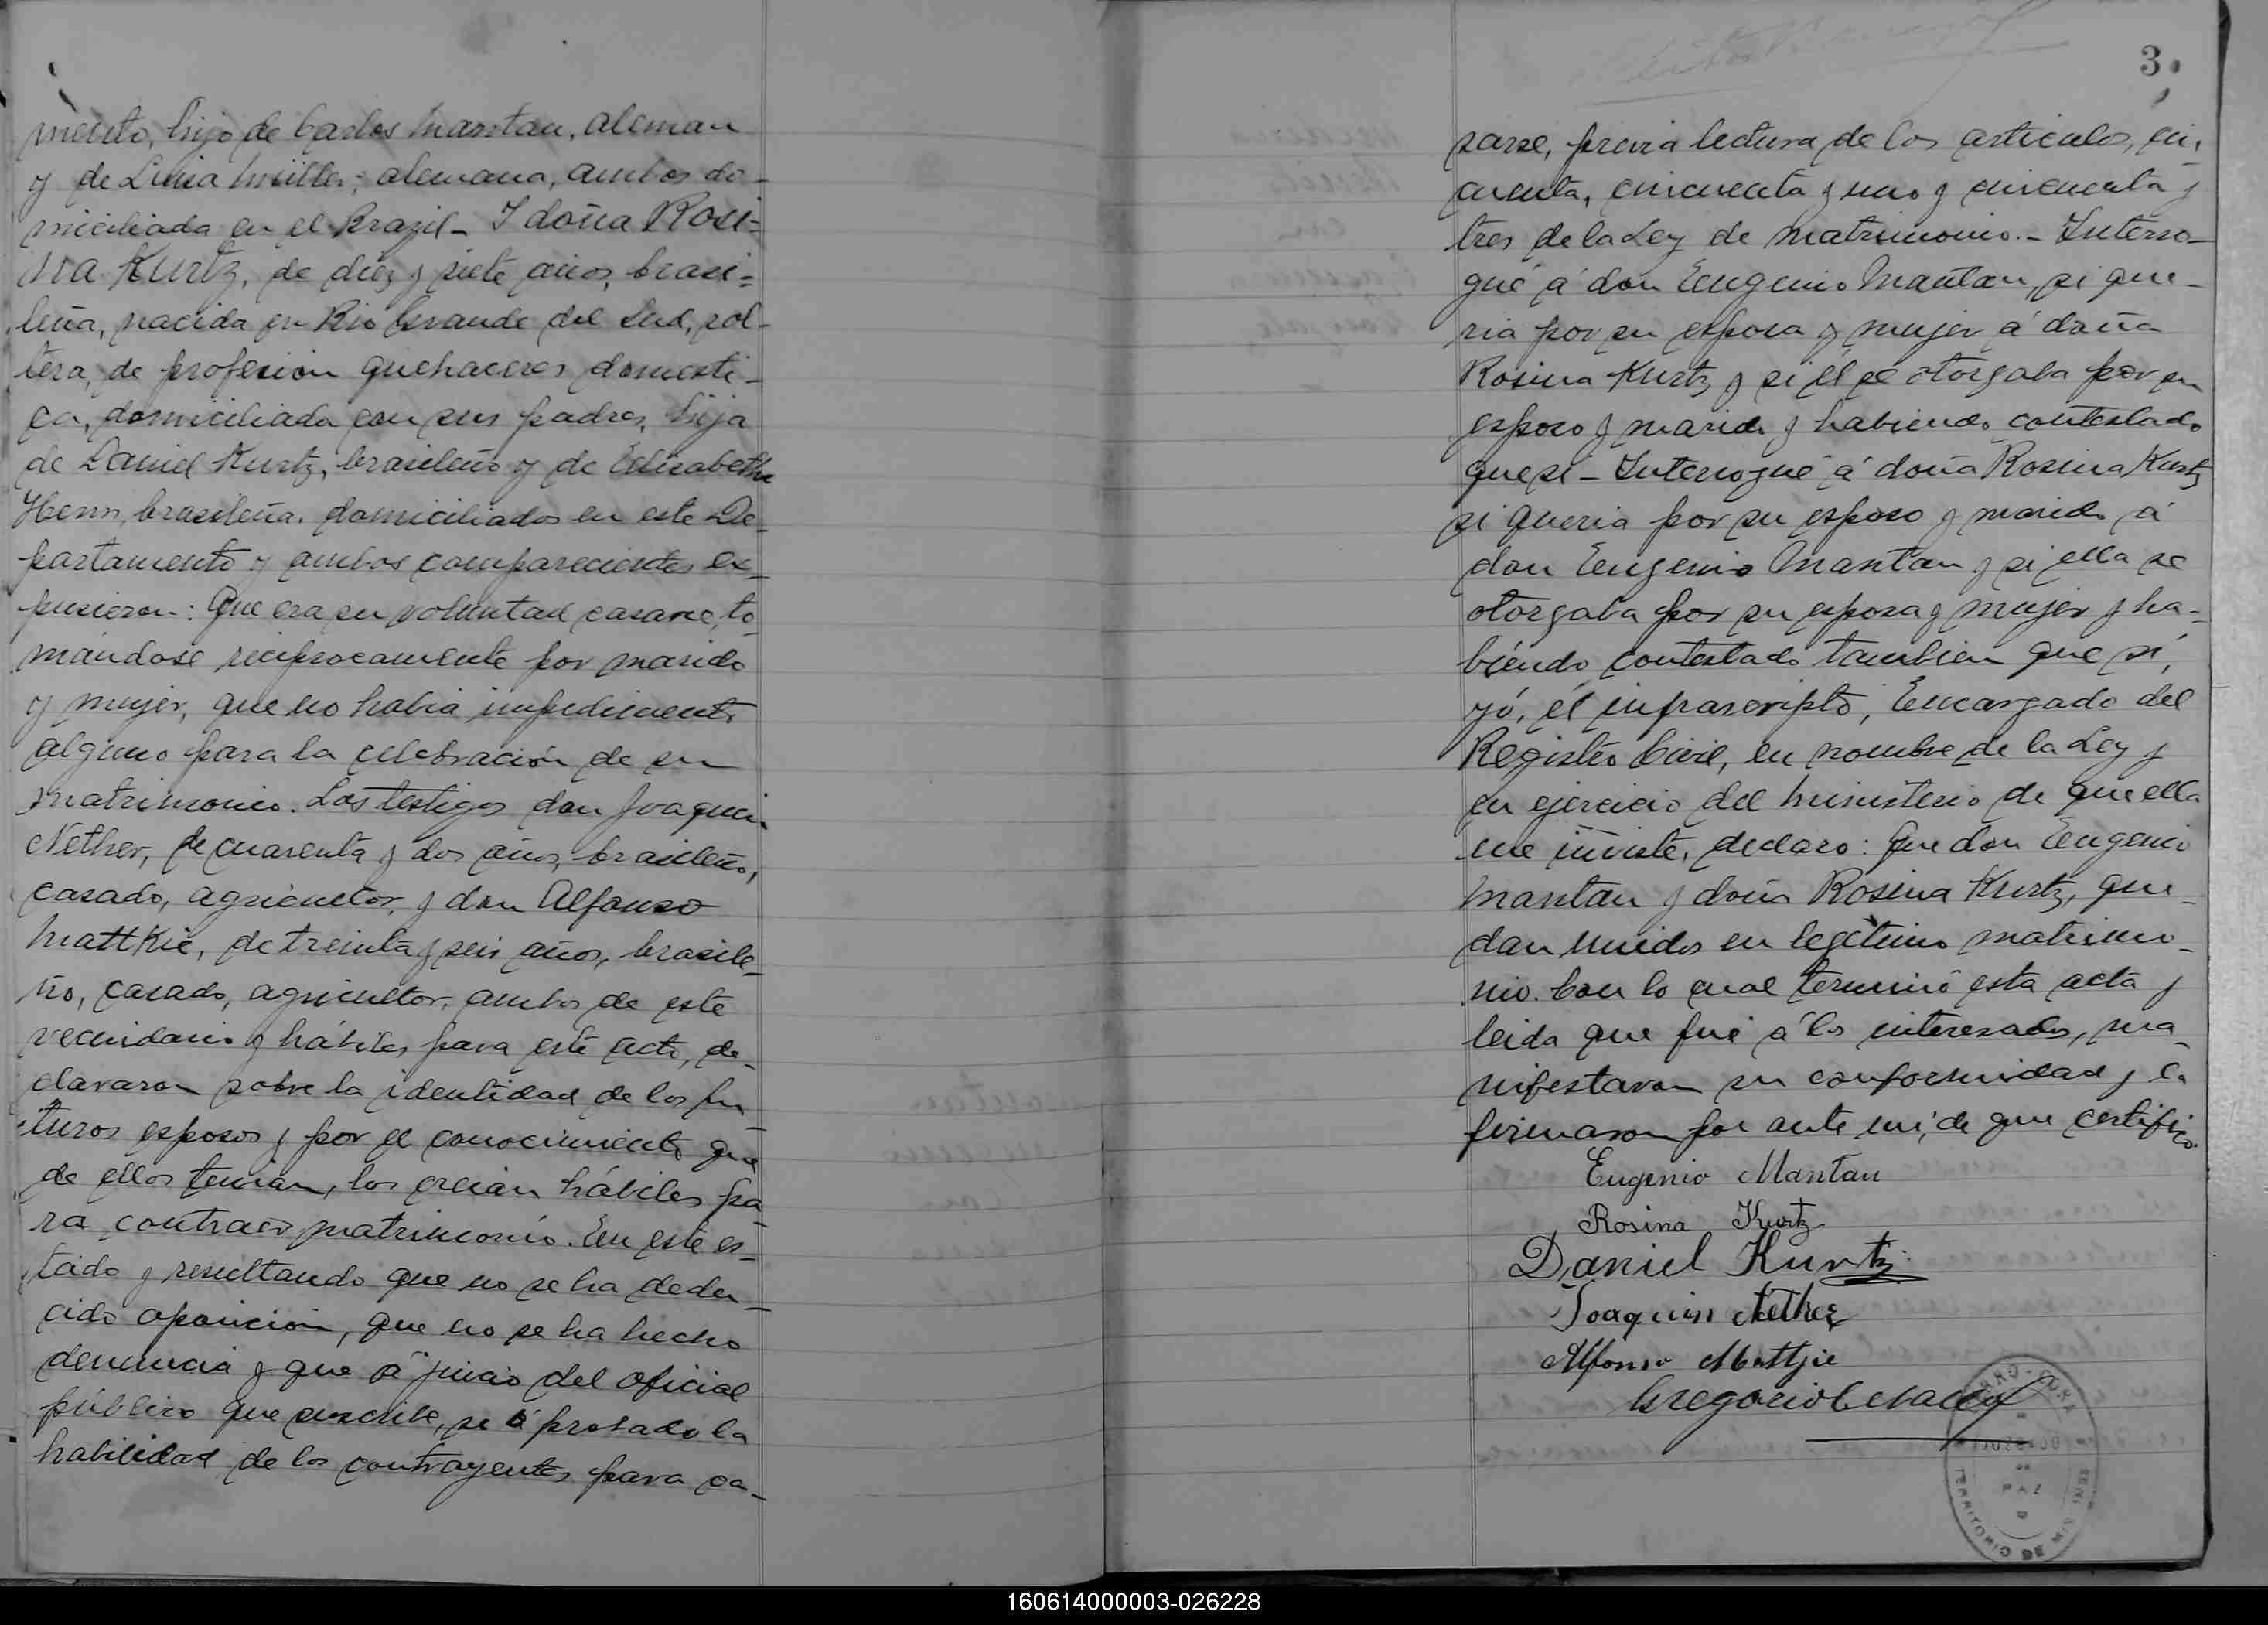 miento, hijo de Carlos Mantau, aleman
y de Luisa Müller, alemana, ambos do-
miciliada en el Brazil - I doña Rosi-
na Kurtz, de diez y siete años, brasi-
leña, nacida en Rio Grande del Sud, sol-
tera, de profesion quehaceres domesti-
ca, domiciliada con sus padres, hija
de Daniel Kurtz, brasileño y de Elisabethe
brasileña, domiciliados en este De-
partamento y ambos comparecientes ex-
pusieron: Que era su voluntad casarse, to
mándose reciprocamente por marido
y mujer, que no habia impedimento
alguno para la celebración de su
matrimonio. Los testigos don Joaquin
Nether, de cuarenta y dos años, brasileño,
casado, agricultor, y don Alfonso
Mattkie, de treinta y seis años, brasile-
ño, casado, agricultor, ambos de este
vecindario y hábiles para este acto, de-
clararon sobre la identidad de los fu-
turos esposos y por el conocimiento que
de ellos tenian, los creian hábiles pa
ra contraer matrimonio. En este es-
tado y resultando que no se ha dedu-
cido oposición, que no se ha hecho
denuncia y que á juicio del oficial
público que suscribe, se á probado la
habilidad de los contrayentes para ca-
3
sarse, previa lectura de los articulos, cin,
cuenta, cincuenta y uno y cincuenta y
tres de la Ley de matrimonio. - Interro-
gué á don Eugenio Mantau, si que-
ria por su esposa y mujer á doña
Rosina Kurtz y si él se otorgaba por su
esposo y marido y habiendo contestado
que si - Interrogué á doña Rosina Kurtz
si queria por su esposo y marido á
don Eugenio Mantau y si ella se
otorgaba por su esposa y mujer y ha-
biendo contestado tambien que si,
yó, él infrascripto, Encargado del
Registro Civil, en nombre de la Ley y
en ejercicio del ministerio de que ella
me inviste, declaro: Que don Eugenio
Mantau y doña Rosina Kurtz, que-
dan unidos en legitimo matrimo-
nio. Con lo cual terminó esta acta y
leida que fué á los interesados, ma-
nifestaron su conformidad y la
firmaron por ante mi, de que certifico.
Eugenio Mantau
Rosina Kurtz
Daniel Kurtz
Joaquin Nether
Alfonso Mattjie
Gregorio
PAZ
TERRITORIO DE MISIONES
160614000003-026228